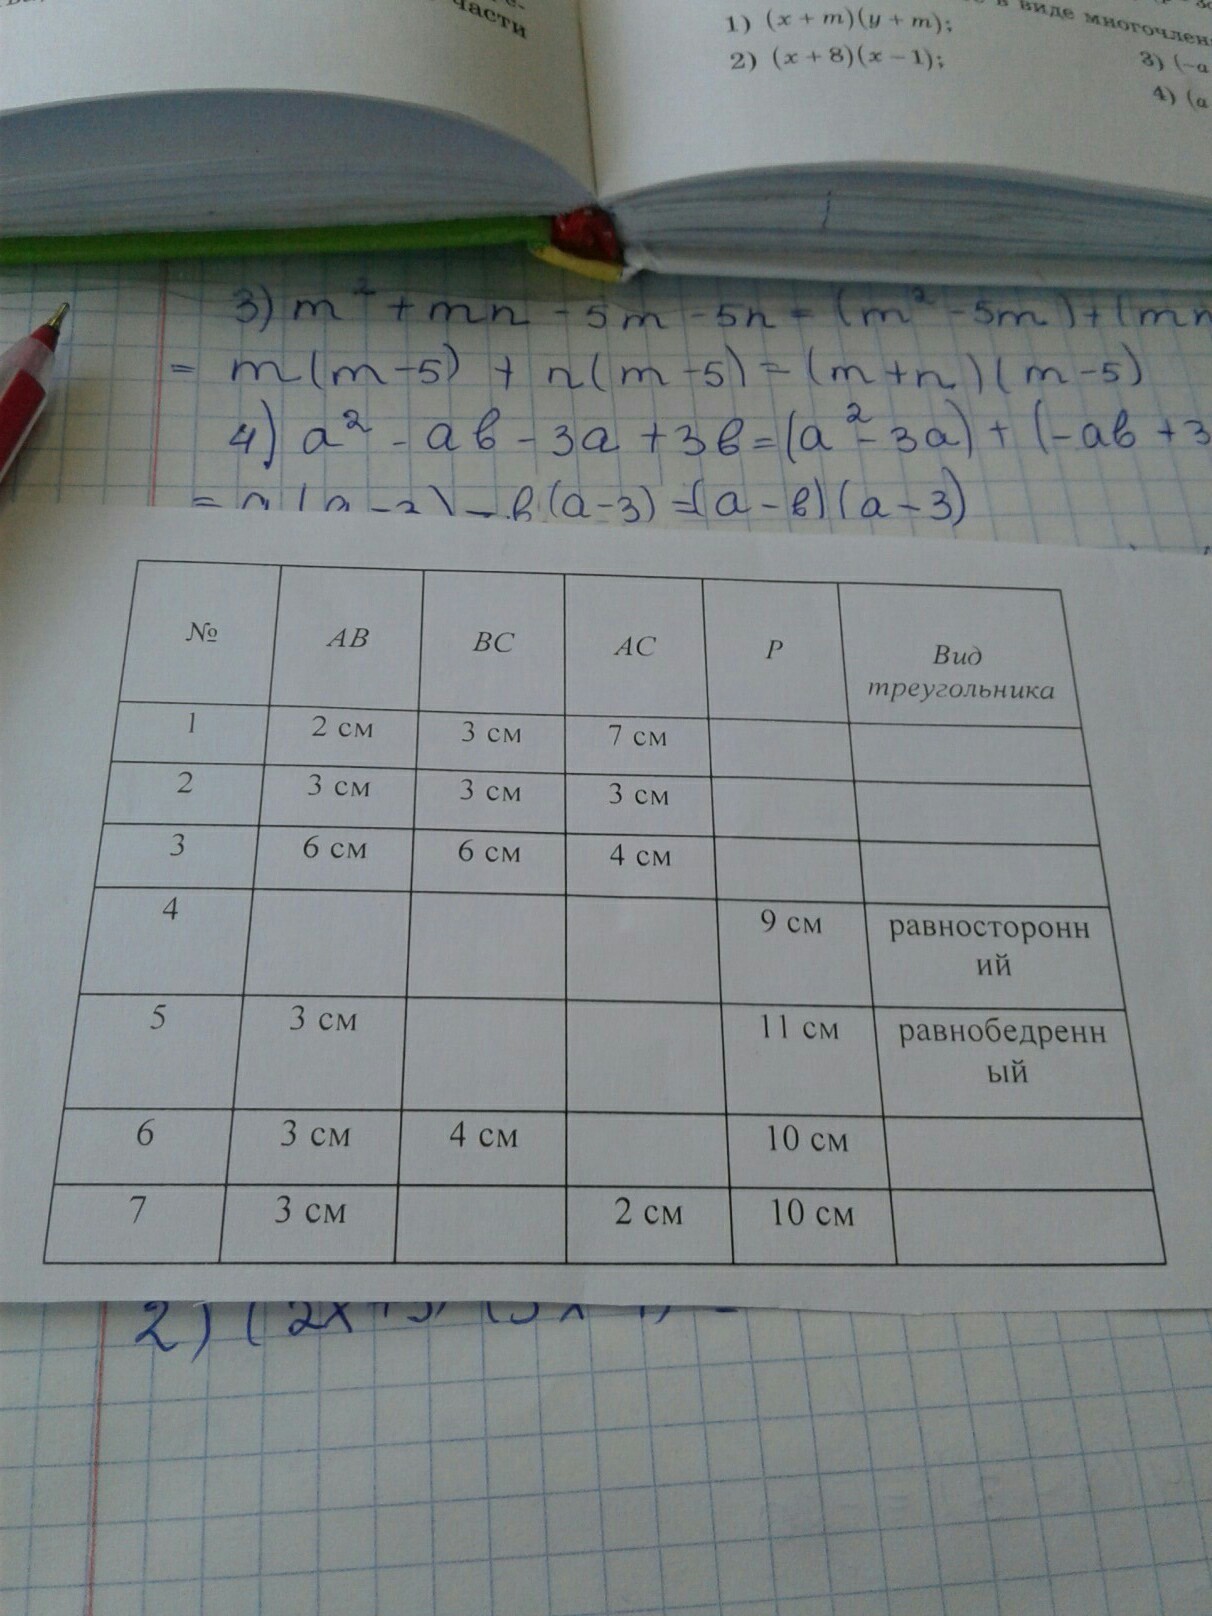 части
в виде многочлен
1) (x + m)(y + m);
2) (x + 8)(x − 1);
3) (−a
4) (a
3) m² + mn − 5m − 5n = (m² − 5m) + (mn
= m(m−5) + n(m−5) = (m+n)(m−5)
4) a² − ab − 3a + 3b = (a² − 3a) + (−ab + 3
= a(a−3) − b(a−3) = (a−b)(a−3)
№ AB BC AC P Вид
треугольника
1 2 см 3 см 7 см
2 3 см 3 см 3 см
3 6 см 6 см 4 см
4 9 см равносторонн
ий
5 3 см 11 см равнобедренн
ый
6 3 см 4 см 10 см
7 3 см 2 см 10 см
2) (2x+3)